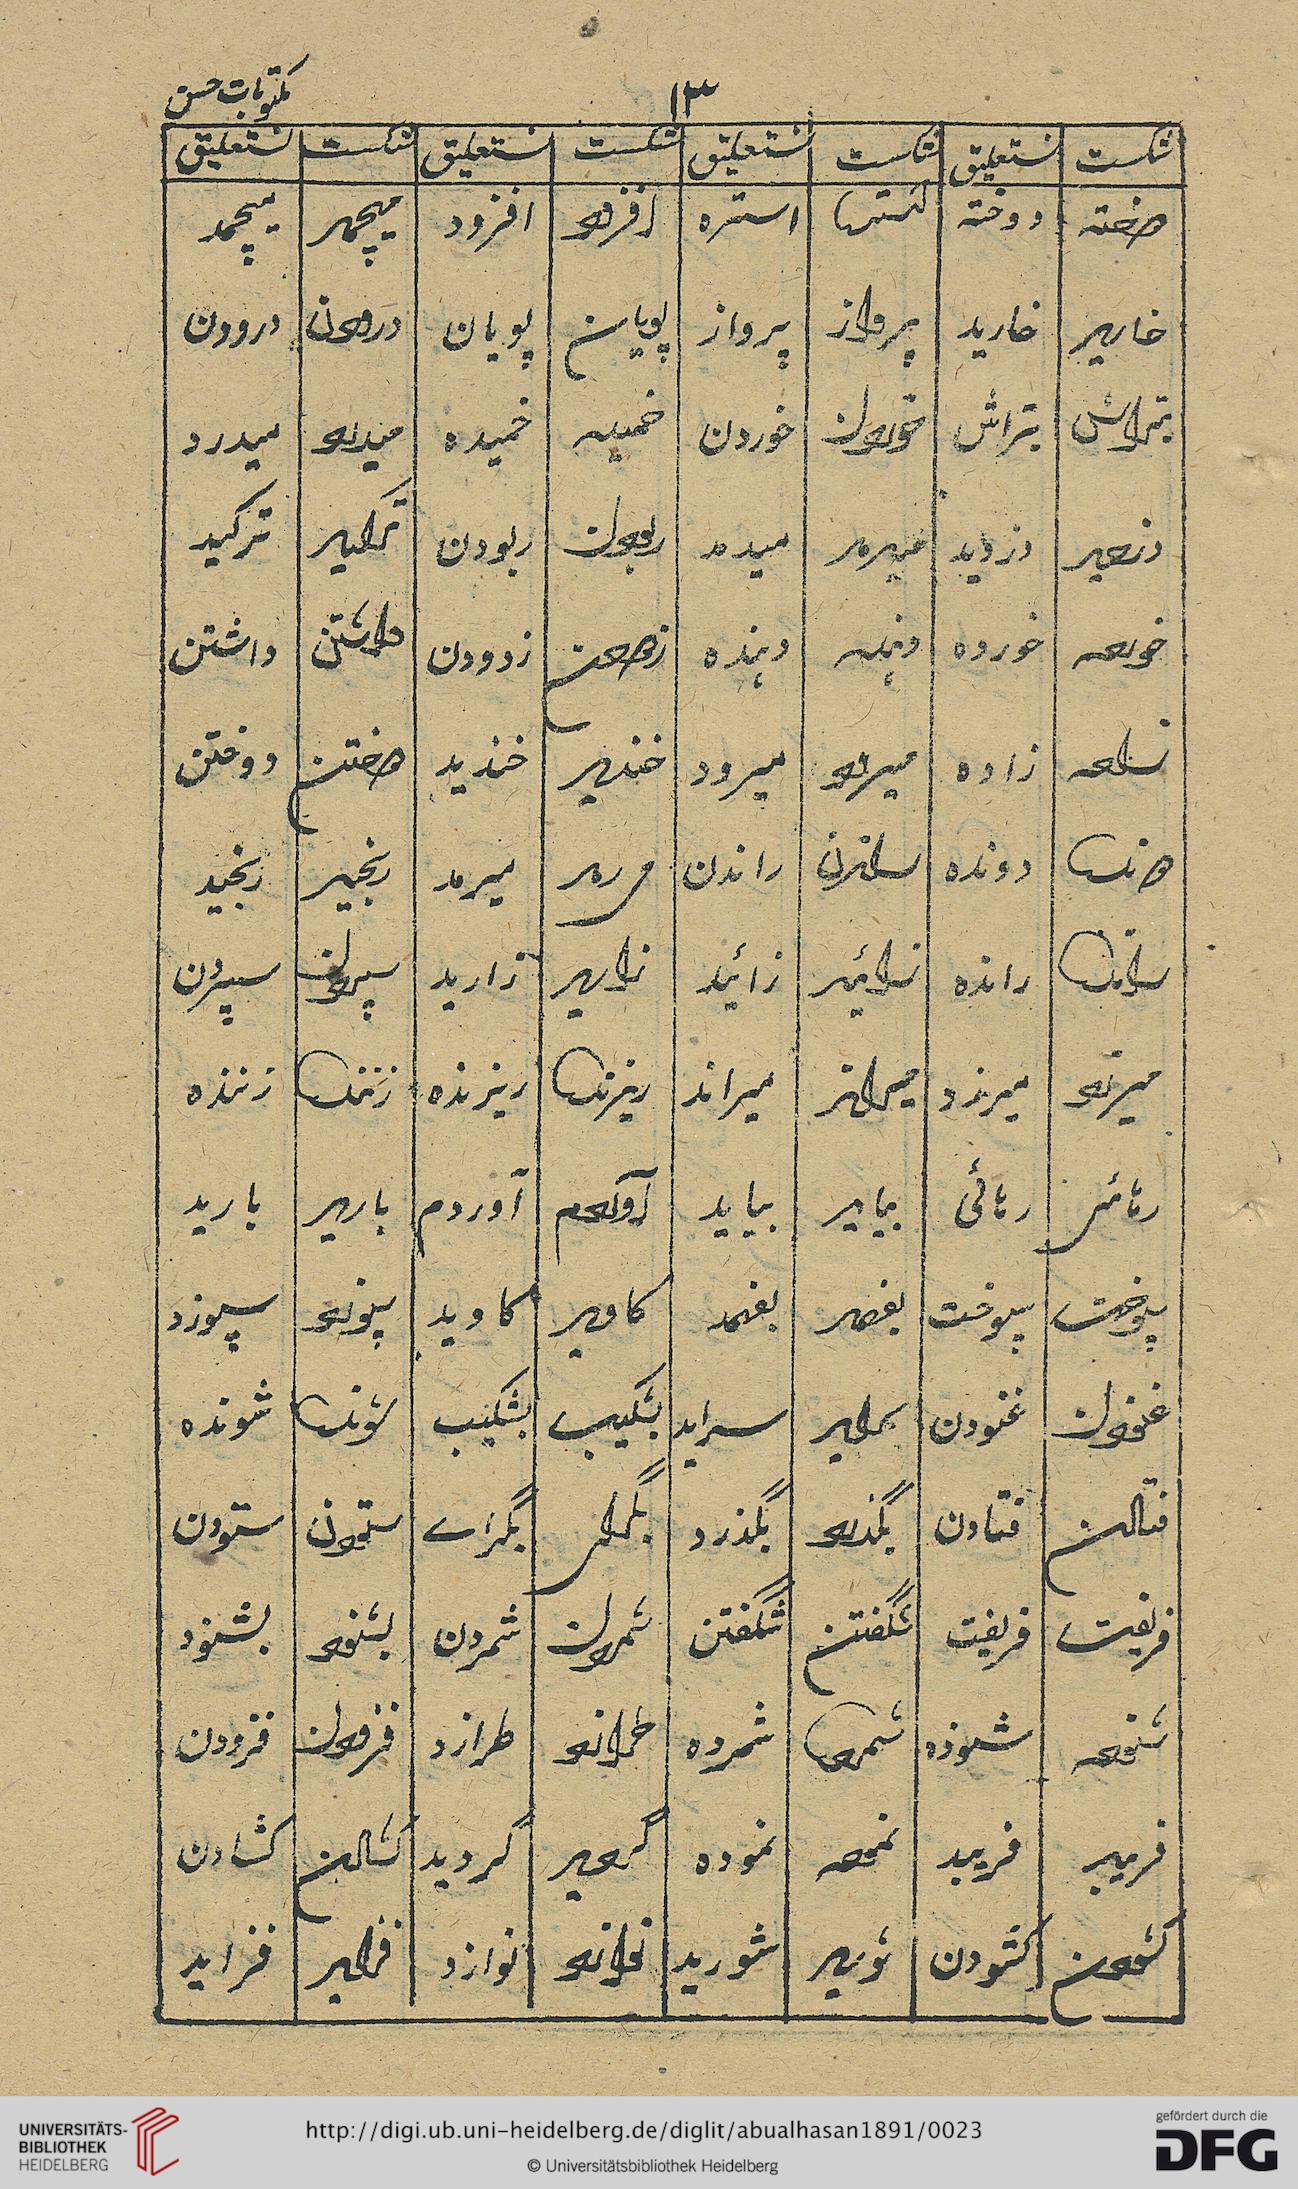 ۱۳ مکتوبات حسن
شکست نستعلیق شکست نستعلیق شکست نستعلیق شکست نستعلیق
دوخته دوخته استره استره افزود افزود میچمد میچمد
خارید خارید پرواز پرواز پویان پویان درودن درودن
بتراش بتراش خوردن خوردن خمیده خمیده میدرد میدرد
دزدید دزدید میدمد میدمد ربودن ربودن ترکید ترکید
خورده خورده دهنده دهنده زدودن زدودن داشتن داشتن
زاده زاده میرود میرود خندید خندید دوختن دوختن
دونده دونده راندن راندن میرمد میرمد رنجید رنجید
رانده رانده زائید زائید زارید زارید سپردن سپردن
میرزد میرزد میراند میراند ریزنده ریزنده زننده زننده
رهائی رهائی بیاید بیاید آوردم آوردم بارید بارید
سپوخت سپوخت بفهمد بفهمد کاوید کاوید سپوزد سپوزد
غنودن غنودن سراید سراید بشکیب بشکیب شونده شونده
فتادن فتادن بگذرد بگذرد بگرای بگراے ستودن ستودن
فریفت فریفت شگفتن شگفتن شمردن شمردن بشنود بشنود
شنوده شنوده شمرده شمرده طرازد طرازد فزودن فزودن
فریبد فریبد نموده نموده گردید گردید کشادن کشادن
کشودن کشودن شورید شورید نوازد نوازد فزاید فزاید
UNIVERSITÄTS-
BIBLIOTHEK
HEIDELBERG
http://digi.ub.uni-heidelberg.de/diglit/abualhasan1891/0023
© Universitätsbibliothek Heidelberg
gefördert durch die
DFG